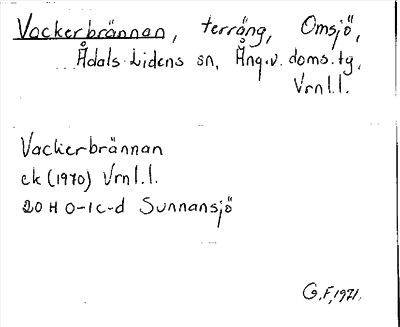 Vackerbrännan, terräng, Omsjö,
Ådals-Lidens sn, Ång.v. doms.tg,
Vrnl.l.
Vackerbrännan
ek (1970) Vrnl.l.
20 H 0-1c-d Sunnansjö
G.F, 1971.